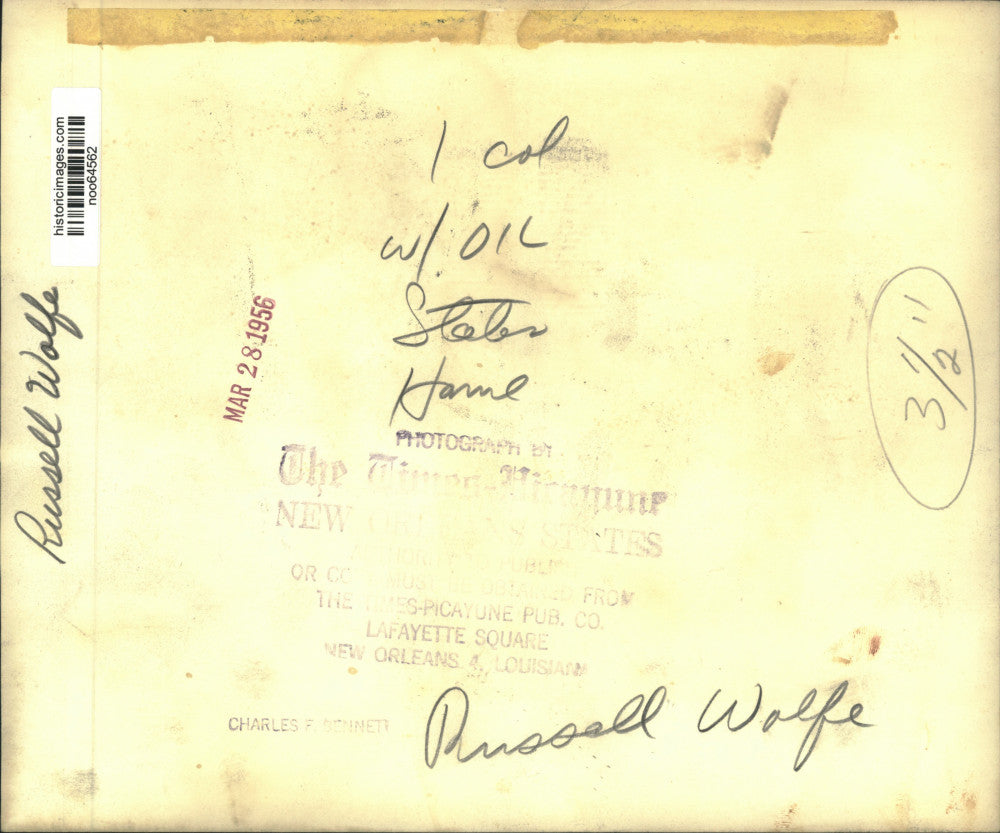 historicimages.com
noo64562
Russell Wolfe
1 col
w/ OIL
States
Harnl
MAR 28 1956
3 1/2 "
PHOTOGRAPH BY
The Times-Picayune
NEW ORLEANS STATES
AUTHORITY TO PUBLISH
OR COPY MUST BE OBTAINED FROM
THE TIMES-PICAYUNE PUB. CO.
LAFAYETTE SQUARE
NEW ORLEANS 4, LOUISIANA
CHARLES F. BENNETT
Russell Wolfe